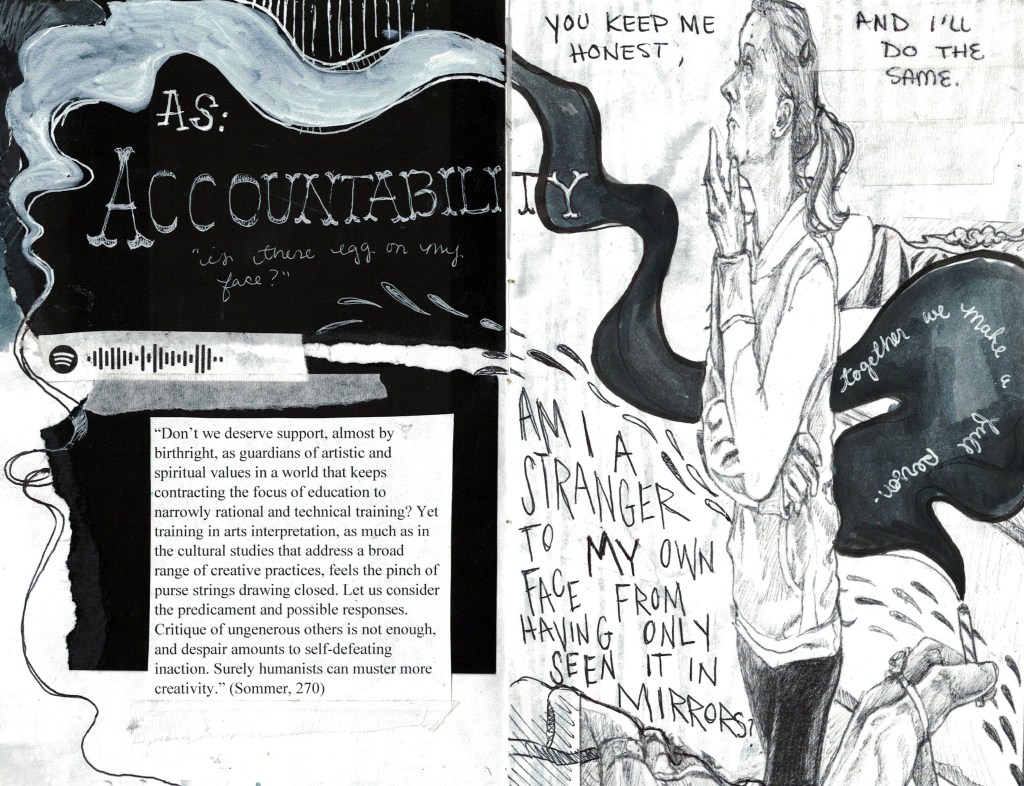 AS:
ACCOUNTABILITY
"is there egg on my
face?"
"Don't we deserve support, almost by
birthright, as guardians of artistic and
spiritual values in a world that keeps
contracting the focus of education to
narrowly rational and technical training? Yet
training in arts interpretation, as much as in
the cultural studies that address a broad
range of creative practices, feels the pinch of
purse strings drawing closed. Let us consider
the predicament and possible responses.
Critique of ungenerous others is not enough,
and despair amounts to self-defeating
inaction. Surely humanists can muster more
creativity." (Sommer, 270)
YOU KEEP ME
HONEST,
AND I'LL
DO THE
SAME.
together we make a full person.
AM I A
STRANGER
TO MY OWN
FACE FROM
HAVING ONLY
SEEN IT IN
MIRRORS?